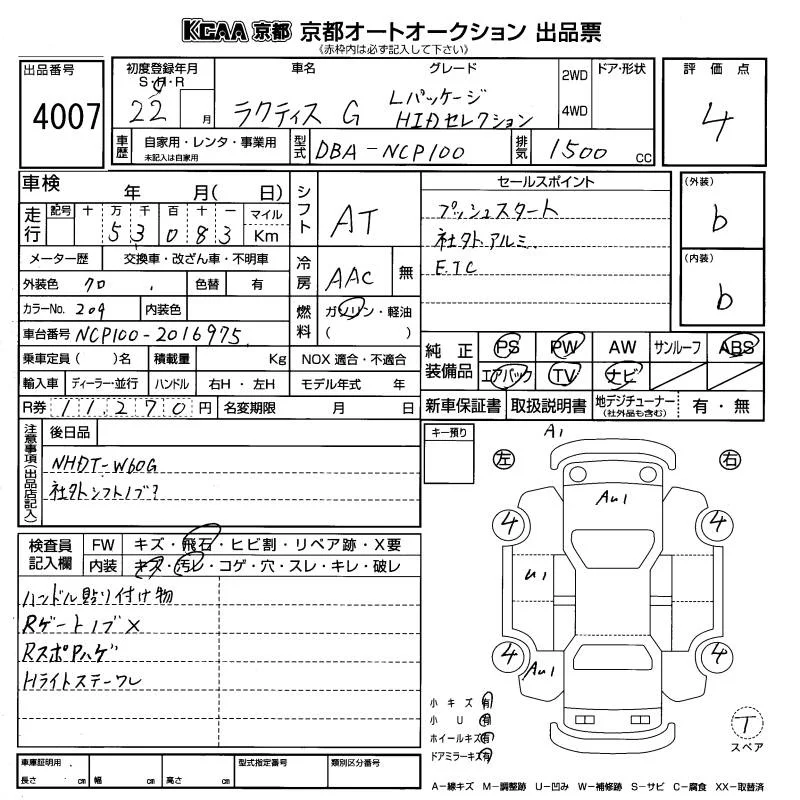 KCAA 京都 京都オートオークション 出品票
《赤枠内は必ず記入して下さい》
出品番号
4007
初度登録年月
S・H・R
22 月
車名 グレード
ラクティス G Lパッケージ
HIDセレクション
2WD
4WD
ドア・形状
評価点
4
車歴
自家用・レンタ・事業用
未記入は自家用
型式
DBA-NCP100
排気
1500 CC
車検 年 月( 日)
走行
記号 十 万 千 百 十 一 マイル
5 3 0 8 3 Km
シフト
AT
セールスポイント
プッシュスタート
社外アルミ.
ETC
(外装)
b
(内装)
b
メーター歴 交換車・改ざん車・不明車
外装色 クロ 色替 有
冷房
AAC 無
カラーNo. 209 内装色
燃料
ガソリン・軽油
( )
車台番号 NCP100-2016975
乗車定員( )名 積載量 Kg NOX 適合・不適合
輸入車 ディーラー・並行 ハンドル 右H・左H モデル年式 年
R券 11,270 円 名変期限 月 日
純正装備品
PS PW AW サンルーフ ABS
エアバック TV ナビ
新車保証書 取扱説明書 地デジチューナー
(社外品も含む)
有・無
注意事項(出品店記入)
後日品
NHDT-W60G
社外シフトノブ?
キー預り
検査員記入欄
FW キズ・飛石・ヒビ割・リペア跡・X要
内装 キズ・汚レ・コゲ・穴・スレ・キレ・破レ
ハンドル貼り付け物
RゲートノブX
RスポPハゲ
Hライトステーワレ
左
右
A1
AU1
4
4
U1
4
4
AU1
小キズ 有
小U 有
ホイールキズ 有
ドアミラーキズ 有
T
スペア
車庫証明用
長さ cm 幅 cm 高さ cm
型式指定番号
類別区分番号
A-線キズ M-調整跡 U-凹み W-補修跡 S-サビ C-腐食 XX-取替済